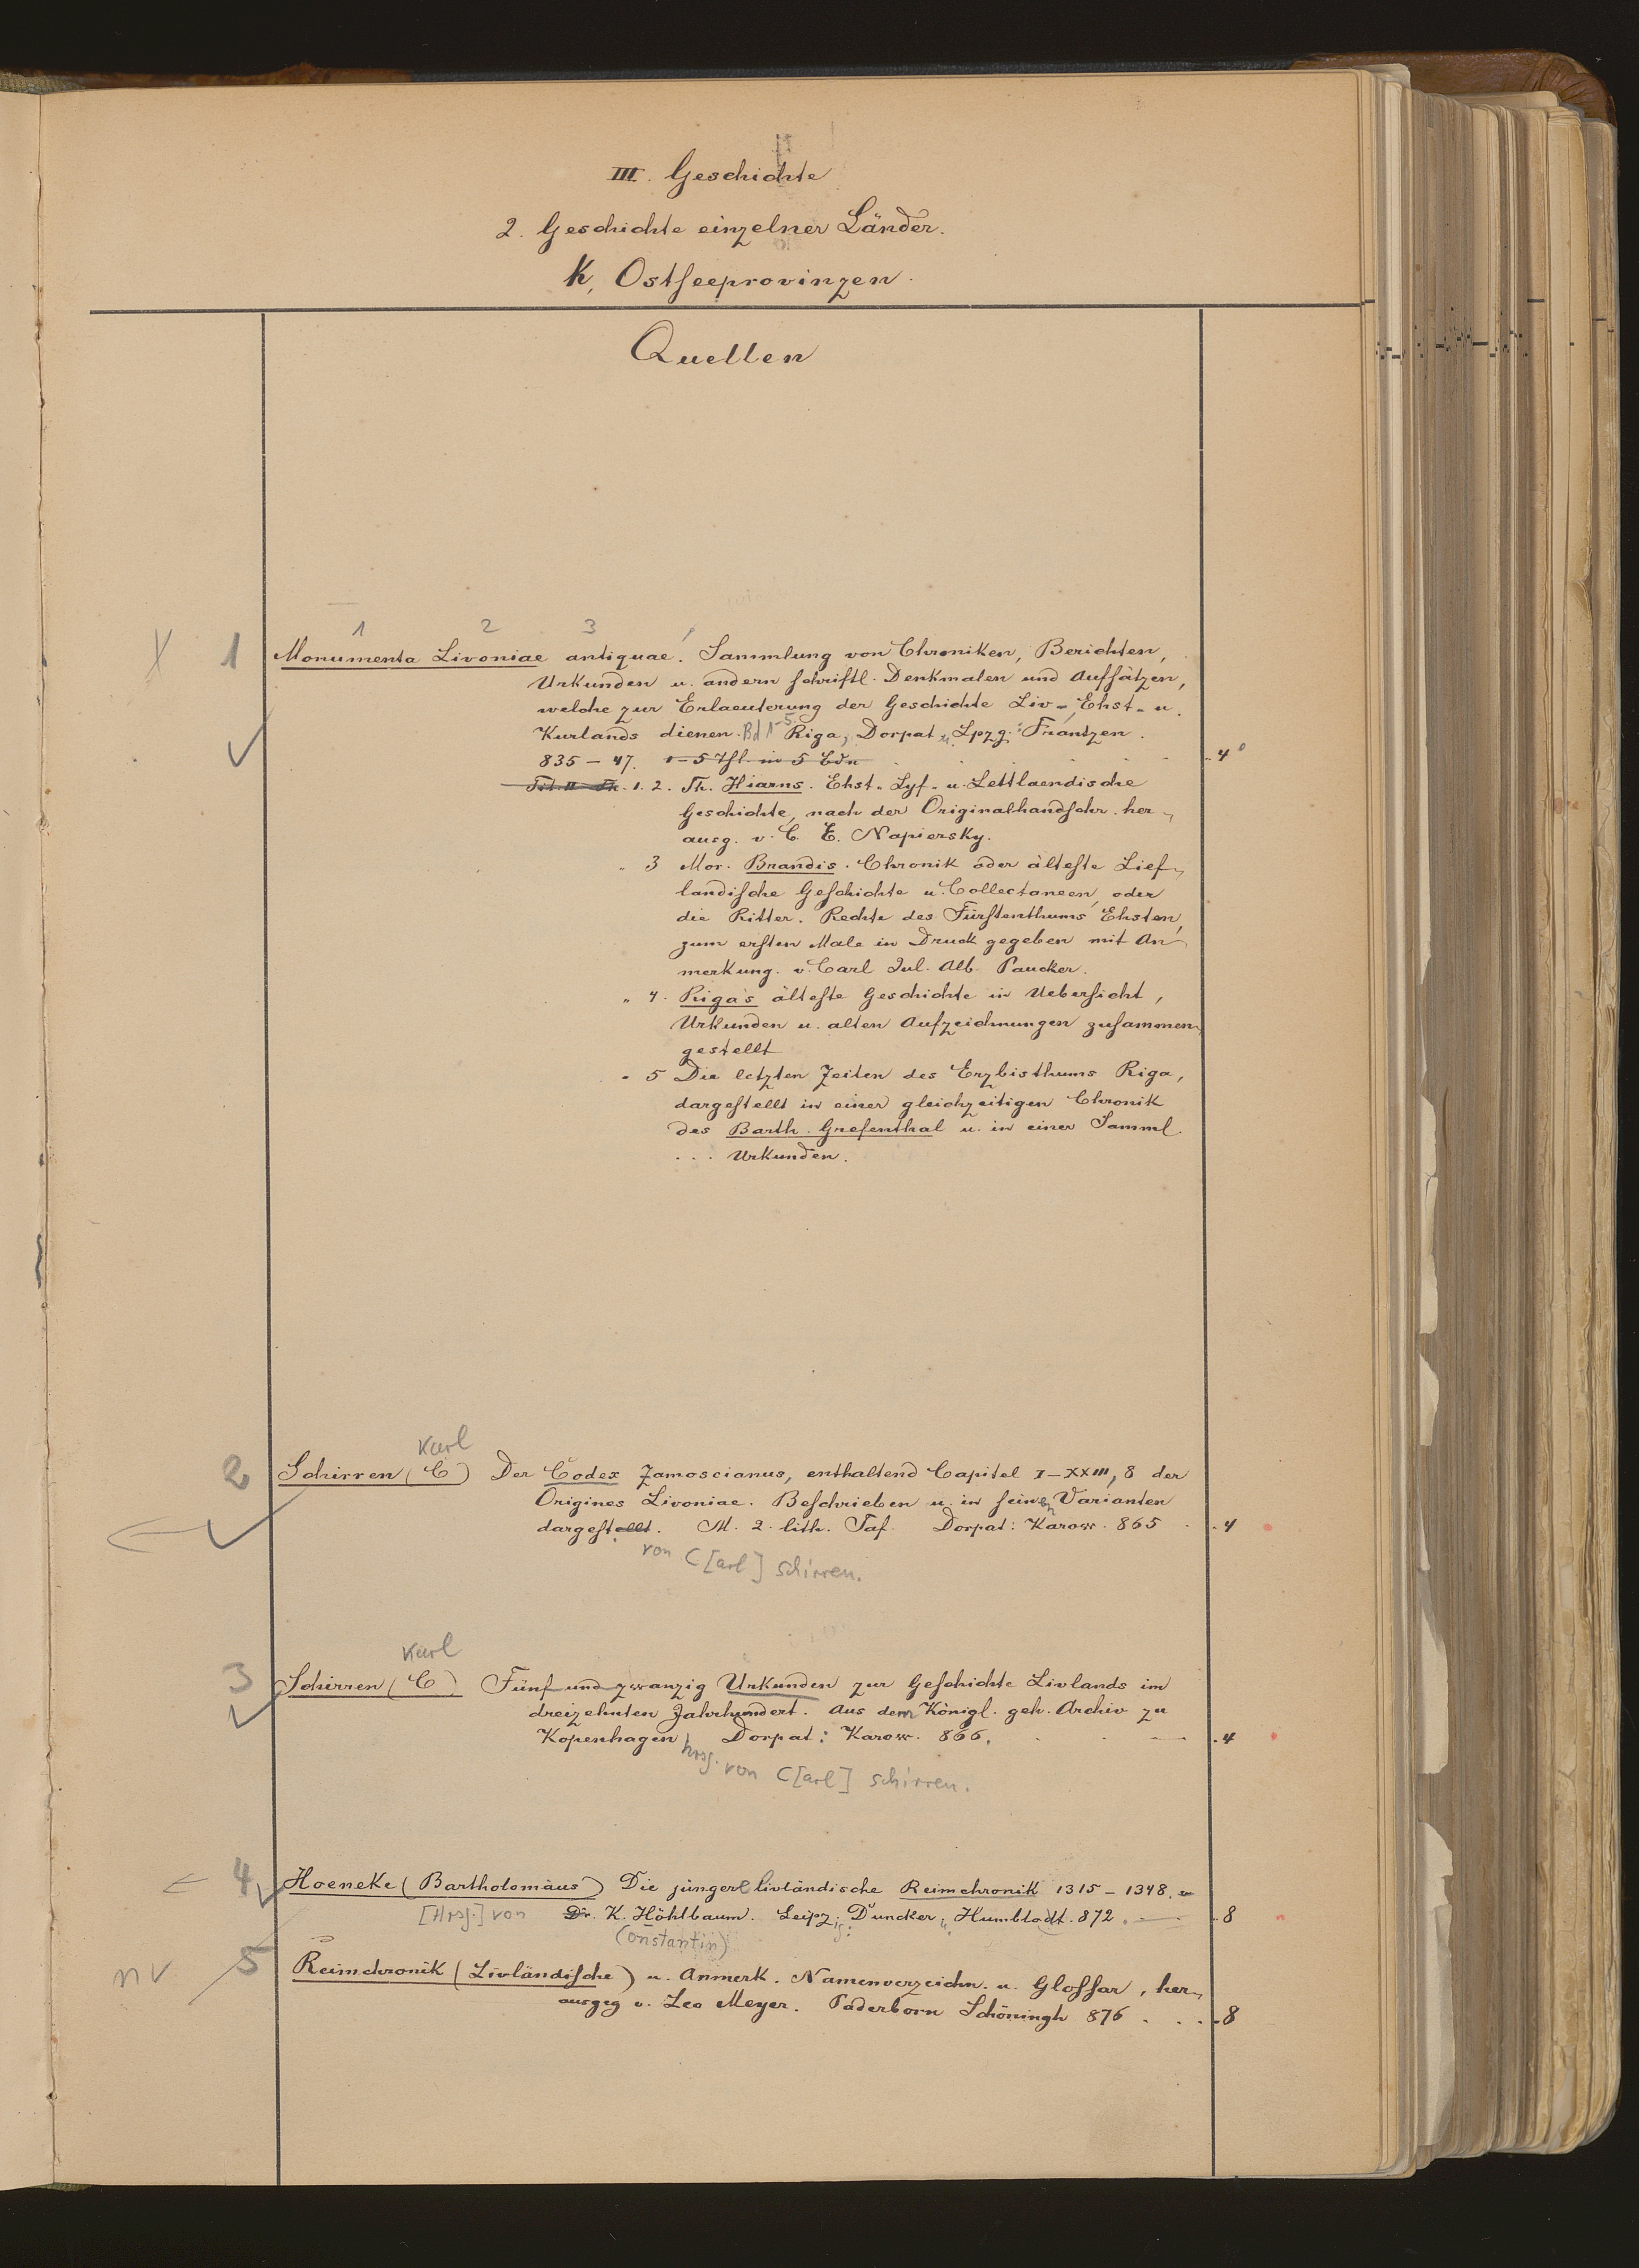 III. Geschichte
2. Geschichte einzelner Länder.
K, Ostseeprovinzen.
Quellen
1 2 3
X 1 Monumenta Livoniae antiquae. Sammlung von Chroniken, Berichten,
Urkunden u. andern schriftl. Denkmalen und Aufsätzen,
welche zur Erlaeuterung der Geschichte Liv-, Ehst- u.
Kurlands dienen. Bd 1-5 Riga, Dorpat u. Lpzg: Frantzen.
835-47. 1-5 Thl in 5 Bdn 4°
1. 2. Th. Hiarns. Ehst- Lyf- u. Lettlaendische
Geschichte, nach der Originalhandschr. her-
ausg. v. C. E. Napiersky.
" 3 Mor. Brandis. Chronik oder älteste Lief-
landische Geschichte u. Collectaneen, oder
die Ritter. Rechte des Fürstenthums Ehsten,
zum ersten Male in Druck gegeben mit An-
merkung. v. Carl Jul. Alb. Paucker.
" 4. Riga's älteste Geschichte in Uebersicht,
Urkunden u. alten Aufzeichnungen zusammen-
gestellt
" 5 Die letzten Zeiten des Erzbisthums Riga,
dargestellt in einer gleichzeitigen Chronik
des Barth. Grefenthal u. in einer Samml.
... Urkunden.
Karl
2 Schirren (C) Der Codex Zamoscianus, enthaltend Capitel I-XXIII, 8 der
Origines Livoniae. Beschrieben u. in seinen Varianten
dargestellt. M. 2. lith. Taf. Dorpat: Karow. 865 4
von C[arl] Schirren.
Karl
3 Schirren (C) Fünf und zwanzig Urkunden zur Geschichte Livlands im
dreizehnten Jahrhundert. Aus dem Königl. geh. Archiv zu
Kopenhagen Dorpat: Karow. 866. 4
hrsg. von C[arl] Schirren.
4 Hoeneke (Bartholomäus) Die jüngere livländische Reimchronik 1315-1348.
[Hrsg.] von Dr. K. Höhlbaum. Leipz: Duncker u. Humblodt. 872. 8
(onstantin)
nv 5 Reimchronik (Livländische) u. Anmerk. Namenverzeichn. u. Glossar, her-
ausgeg v. Leo Meyer. Paderborn Schöningh 876 8